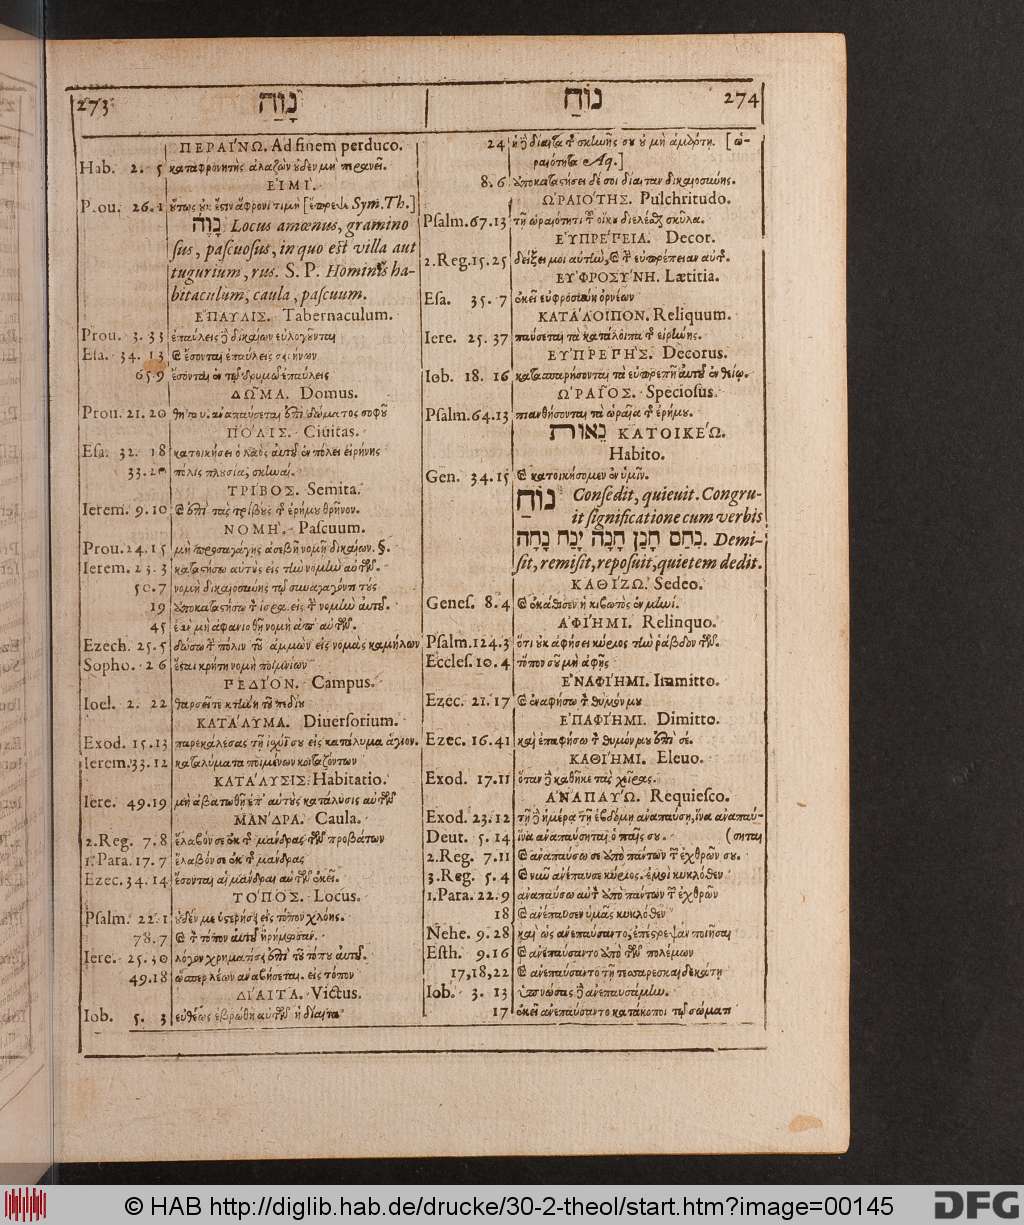 273 נָוַה
נוֹחַ 274
ΠΕΡΑΙΝΩ. Ad finem perduco.
Hab. 2. 5 καταφρονητὴς ἀλαζὼν οὐδὲν μὴ περανεῖ.
ΕΙΜΙ.
Prou. 26.1 οὕτως οὐκ ἔστιν ἄφρονι τιμή [ἔπρεψε Sym.Th.]
נָוֶה Locus amœnus, gramino
sus, pascuosus, in quo est villa aut
tugurium, rus. S. P. Hominis ha-
bitaculum, caula, pascuum.
ΕΠΑΥΛΙΣ. Tabernaculum.
Prou. 3. 33 ἐπαύλεις δὲ δικαίων εὐλογοῦνται
Esa. 34. 13 καὶ ἔσονται ἐπαύλεις σειρήνων
65.9 ἔσονται ἐν τῷ δρυμῷ ἐπαύλεις
ΔΩΜΑ. Domus.
Prou. 21. 20 ἀναπαύσεται ἐπὶ δώματος σοφοῦ
ΠΟΛΙΣ. Ciuitas.
Esa. 32. 18 κατοικήσει ὁ λαὸς αὐτοῦ ἐν πόλει εἰρήνης
33.20 πόλις πλουσία, σκηναί.
ΤΡΙΒΟΣ. Semita.
Ierem. 9.10 καὶ ἐπὶ τὰς τρίβους τῆς ἐρήμου θρῆνον.
ΝΟΜΗ. Pascuum.
Prou. 24. 15 μὴ προσαγάγης ἀσεβῆ νομῇ δικαίων. §.
Ierem. 23. 3 καταστήσω αὐτοὺς εἰς τὴν νομὴν αὐτῶν.
50.7 νομῇ δικαιοσύνης τῷ συναγαγόντι τοὺς
19 ἀποκαταστήσω τὸν ἰσρα. εἰς τὴν νομὴν αὐτοῦ.
45 ἐὰν μὴ ἀφανισθῇ νομὴ ἀπ' αὐτῶν.
Ezech. 25. 5 δώσω τὴν πόλιν τοῦ ἀμμὼν εἰς νομὰς καμήλων
Sopho. 2 6 ἔσται κρήτη νομὴ ποιμνίων
ΠΕΔΙΟΝ. Campus.
Ioel. 2. 22 θαρσεῖτε κτήνη τοῦ πεδίου
ΚΑΤΑΛΥΜΑ. Diuersorium.
Exod. 15.13 παρεκάλεσας τῇ ἰσχύϊ σου εἰς κατάλυμα ἅγιον.
Ierem. 33. 12 καταλύματα ποιμένων κοιταζόντων
ΚΑΤΑΛΥΣΙΣ. Habitatio.
Iere. 49.19 μὴ ἀβατωθῇ ἐπ' αὐτοὺς κατάλυσις αὐτῶν
ΜΑΝΔΡΑ. Caula.
2. Reg. 7. 8 ἔλαβόν σε ἐκ τῆς μάνδρας τῶν προβάτων
1. Para. 17. 7 ἔλαβόν σε ἐκ τῆς μάνδρας
Ezec. 34. 14 ἔσονται αἱ μάνδραι αὐτῶν ἐκεῖ.
ΤΟΠΟΣ. Locus.
Psalm. 22.1 οὐδέν με ὑστερήσει εἰς τόπον χλόης.
78. 7 καὶ τὸν τόπον αὐτοῦ ἠρήμωσαν.
Iere. 25. 30 λόγον χρηματίσει ἐπὶ τοῦ τόπου αὐτοῦ.
49.18 ὥσπερ λέων ἀναβήσεται. εἰς τόπον
ΔΙΑΙΤΑ. Victus.
Iob. 5. 3 εὐθέως ἐβρώθη αὐτῶν ἡ δίαιτα
24 ἡ δὲ δίαιτα τῆς σκηνῆς σου οὐ μὴ ἁμάρτῃ. [ὡ-
ραιότητα Aq.]
8. 6 ἀποκαταστήσει δέ σοι δίαιταν δικαιοσύνης.
ΩΡΑΙΟΤΗΣ. Pulchritudo.
Psalm. 67. 13 τῇ ὡραιότητι τοῦ οἴκου διελέσθαι σκῦλα.
ΕΥΠΡΕΠΕΙΑ. Decor.
2. Reg. 15. 25 δείξει μοι αὐτὴν, καὶ τὴν εὐπρέπειαν αὐτῆς.
ΕΥΦΡΟΣΥΝΗ. Lætitia.
Esa. 35. 7 ἐκεῖ εὐφροσύνη ὀρνέων
ΚΑΤΑΛΟΙΠΟΝ. Reliquum.
Iere. 25. 37 παύσεται τὰ κατάλοιπα τῆς εἰρήνης.
ΕΥΠΡΕΠΗΣ. Decorus.
Iob. 18. 16
ΩΡΑΙΟΣ. Speciosus.
Psalm. 64. 13 πιανθήσονται τὰ ὡραῖα τῆς ἐρήμου.
נְאוֹת ΚΑΤΟΙΚΕΩ.
Habito.
Gen. 34. 15 καὶ κατοικήσομεν ἐν ὑμῖν.
נוֹחַ Consedit, quieuit. Congru-
it significatione cum verbis
נָחַם חָנַן חָנָה יָנַח נָחָה. Demi-
sit, remisit, reposuit, quietem dedit.
ΚΑΘΙΖΩ. Sedeo.
Genes. 8. 4 καὶ ἐκάθισεν ἡ κιβωτὸς ἐν μηνί.
ΑΦΙΗΜΙ. Relinquo.
Psalm. 124.3 ὅτι οὐκ ἀφήσει κύριος τὴν ῥάβδον τῶν.
Eccles. 10. 4 τόπον σοῦ μὴ ἀφῇς
ΕΝΑΦΙΗΜΙ. Immitto.
Ezec. 21. 17 καὶ ἐναφήσω τὸν θυμόν μου
ΕΠΑΦΙΗΜΙ. Dimitto.
Ezec. 16. 41 καὶ ἐπαφήσω τὸν θυμόν μου ἐπὶ σέ.
ΚΑΘΙΗΜΙ. Eleuo.
Exod. 17.11 ὅταν δὲ καθῆκε τὰς χεῖρας.
ΑΝΑΠΑΥΩ. Requiesco.
Exod. 23. 12 τῇ δὲ ἡμέρᾳ τῇ ἑβδόμῃ ἀναπαύσῃ, ἵνα ἀναπαύ-
Deut. 5. 14 ἵνα ἀναπαύσηται ὁ παῖς σου. (σηται
2. Reg. 7. 11 καὶ ἀναπαύσω σε ἀπὸ πάντων τῶν ἐχθρῶν σου.
3. Reg. 5. 4 καὶ νῦν ἀνέπαυσε κύριος. ἐμοὶ κυκλόθεν
1. Para. 22. 9 ἀναπαύσω αὐτὸν ἀπὸ πάντων τῶν ἐχθρῶν
18 καὶ ἀνέπαυσεν ὑμᾶς κυκλόθεν
Nehe. 9. 28 καὶ ὡς ἀνεπαύσαντο, ἐπέστρεψαν ποιῆσαι
Esth. 9. 16 καὶ ἀνεπαύσαντο ἀπὸ τῶν πολέμων
17,18,22 καὶ ἀνεπαύσαντο τῇ τεσσαρεσκαιδεκάτῃ
Iob. 3. 13 ὑπνώσας δὲ ἀνεπαυσάμην.
17 ἐκεῖ ἀνεπαύσαντο κατάκοποι τῷ σώματι
© HAB http://diglib.hab.de/drucke/30-2-theol/start.htm?image=00145
DFG